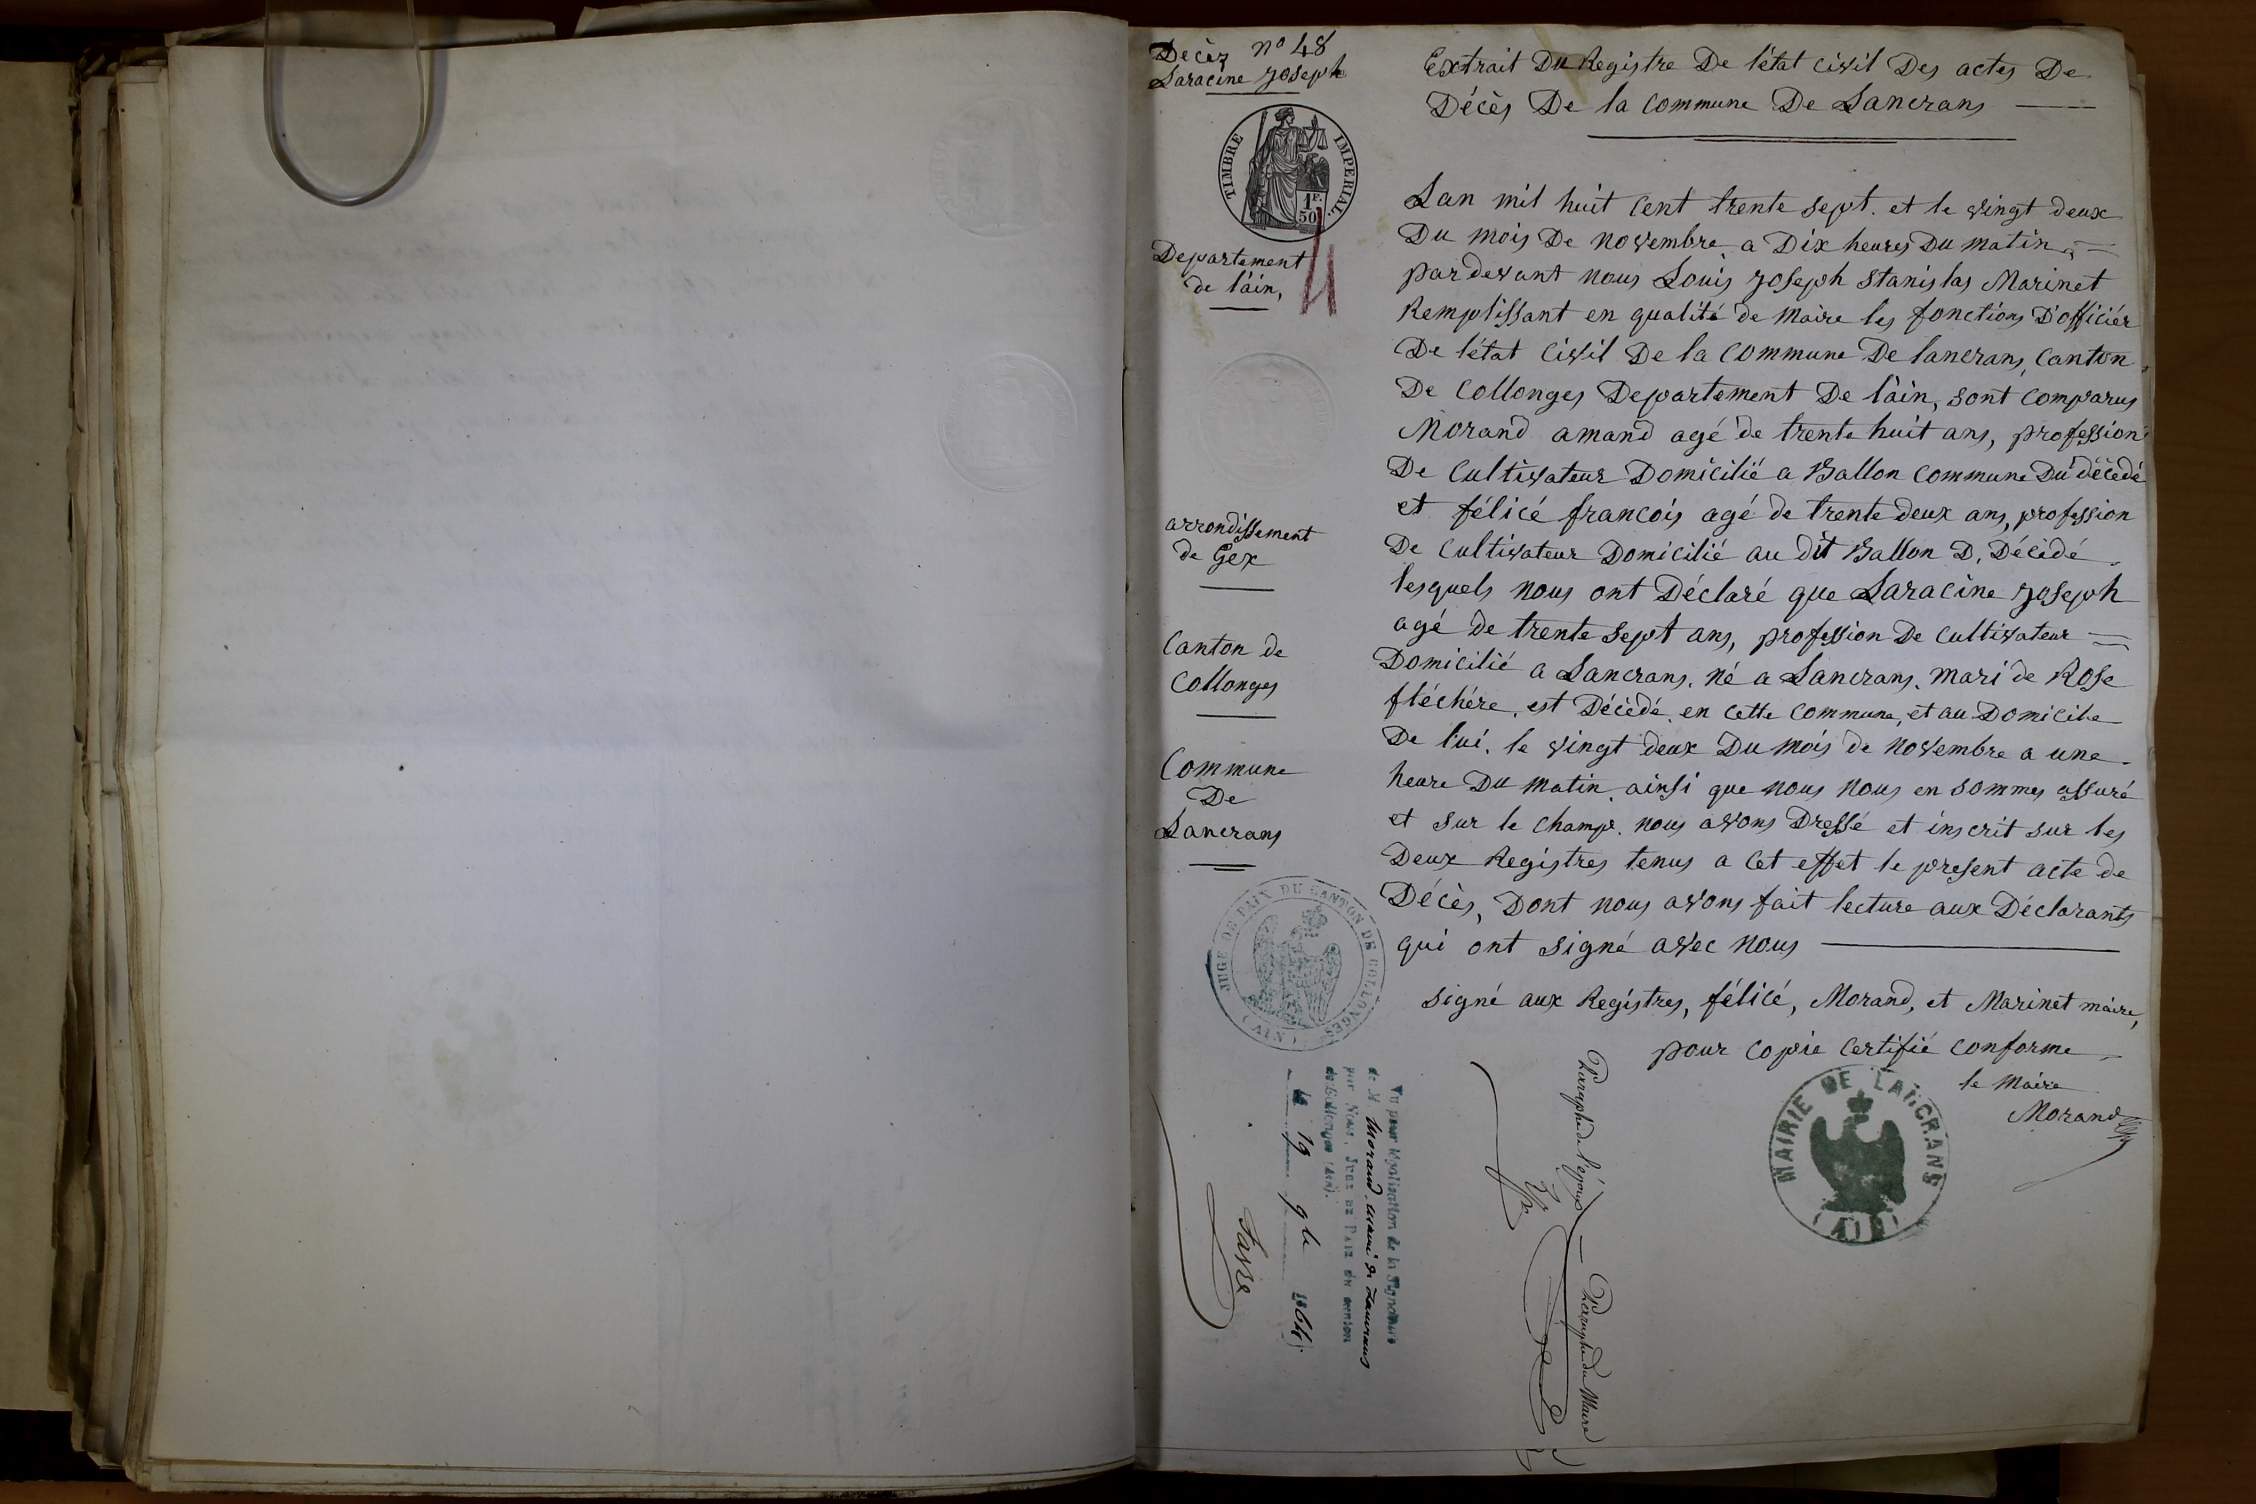 Décèz nº 48
Saracine Joseph
TIMBRE IMPERIAL.
1F.
50
Departement
de l'áin,
arrondissement
de Gex
Canton de
Collonges
Commune
De
Lancrans
JUGE DE PAIX DU CANTON DE COLLONGES
(AIN)
Extrait Du Registre De l'état civil Des actes De
Décès De la commune De Lancrans
Lan mil huit cent trente sept. et le vingt deux
Du mois De novembre, a Dix heures Du matin,
pardevant nous Louis Joseph Stanislas Marinet
Remplissant en qualité de Maire les fonctions D'officiér
De l'état Civil De la Commune De lancrans, Canton
De Collonges Departement De l'áin, sont comparus
Morand amand agé de trente huit ans, profession
De Cultivateur Domicilié a Ballon commune Du décédé
et félicé francois agé de trente deux ans, profession
De Cultivateur Domicilié au dit Ballon D. Décédé
lesquels nous ont Déclaré que Saracine Joseph
agé de trente sept ans, profession De Cultivateur
Domicilié a Lancrans. né a Lancrans. mari de Rose
fléchére. est Décédé. en cette commune, et au Domicile
De lui. le vingt deux Du mois de novembre a une
heure Du matin. ainsi que nous nous en sommes assuré
et sur le champ. nous avons Dressé et inscrit sur les
Deux Registres tenus a cet effet le present acte de
Décès, Dont nous avons fait lecture aux Déclarants
qui ont signé avec nous
signé aux Registres, félicé, Morand, et Marinet máire,
pour copie certifié conforme
le Máire
Morand
MAIRIE DE LANCRANS
(AIN)
Vu pour légalisation de la Signature
de M. Morand maire de Lancrans
par Nous, JUGE DE PAIX du canton
de Collonges (Ain).
le 19 9bre 1864.
Favre
Paraphe de l'époux
Paraphe du Maire